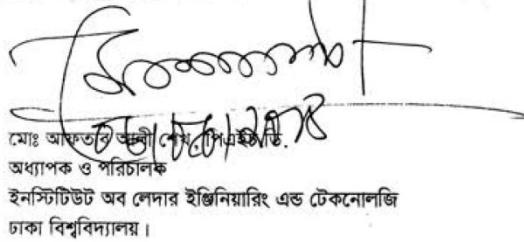 মোঃ আফতাব আলী শেখ, পিএইচ.ডি.
অধ্যাপক ও পরিচালক
ইনস্টিটিউট অব লেদার ইঞ্জিনিয়ারিং এন্ড টেকনোলজি
ঢাকা বিশ্ববিদ্যালয়।